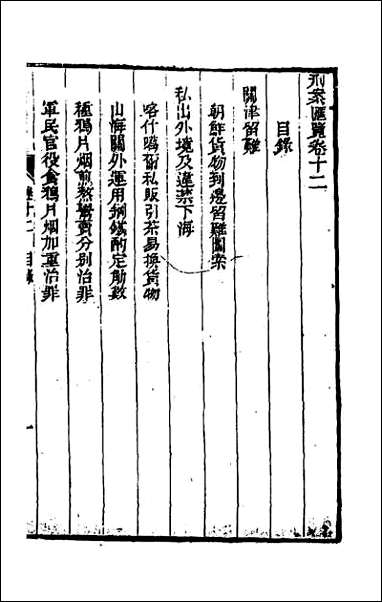 刑案匯覽卷十二
目錄
關津留難
朝鮮貨物到邊留難圖索
私出外境及違禁下海
喀什噶爾私販引茶易換貨物
山海關外運用銅鐵酌定觔數
種鴉片烟煎熬售賣分別治罪
軍民官役食鴉片烟加重治罪
卷十二 目錄